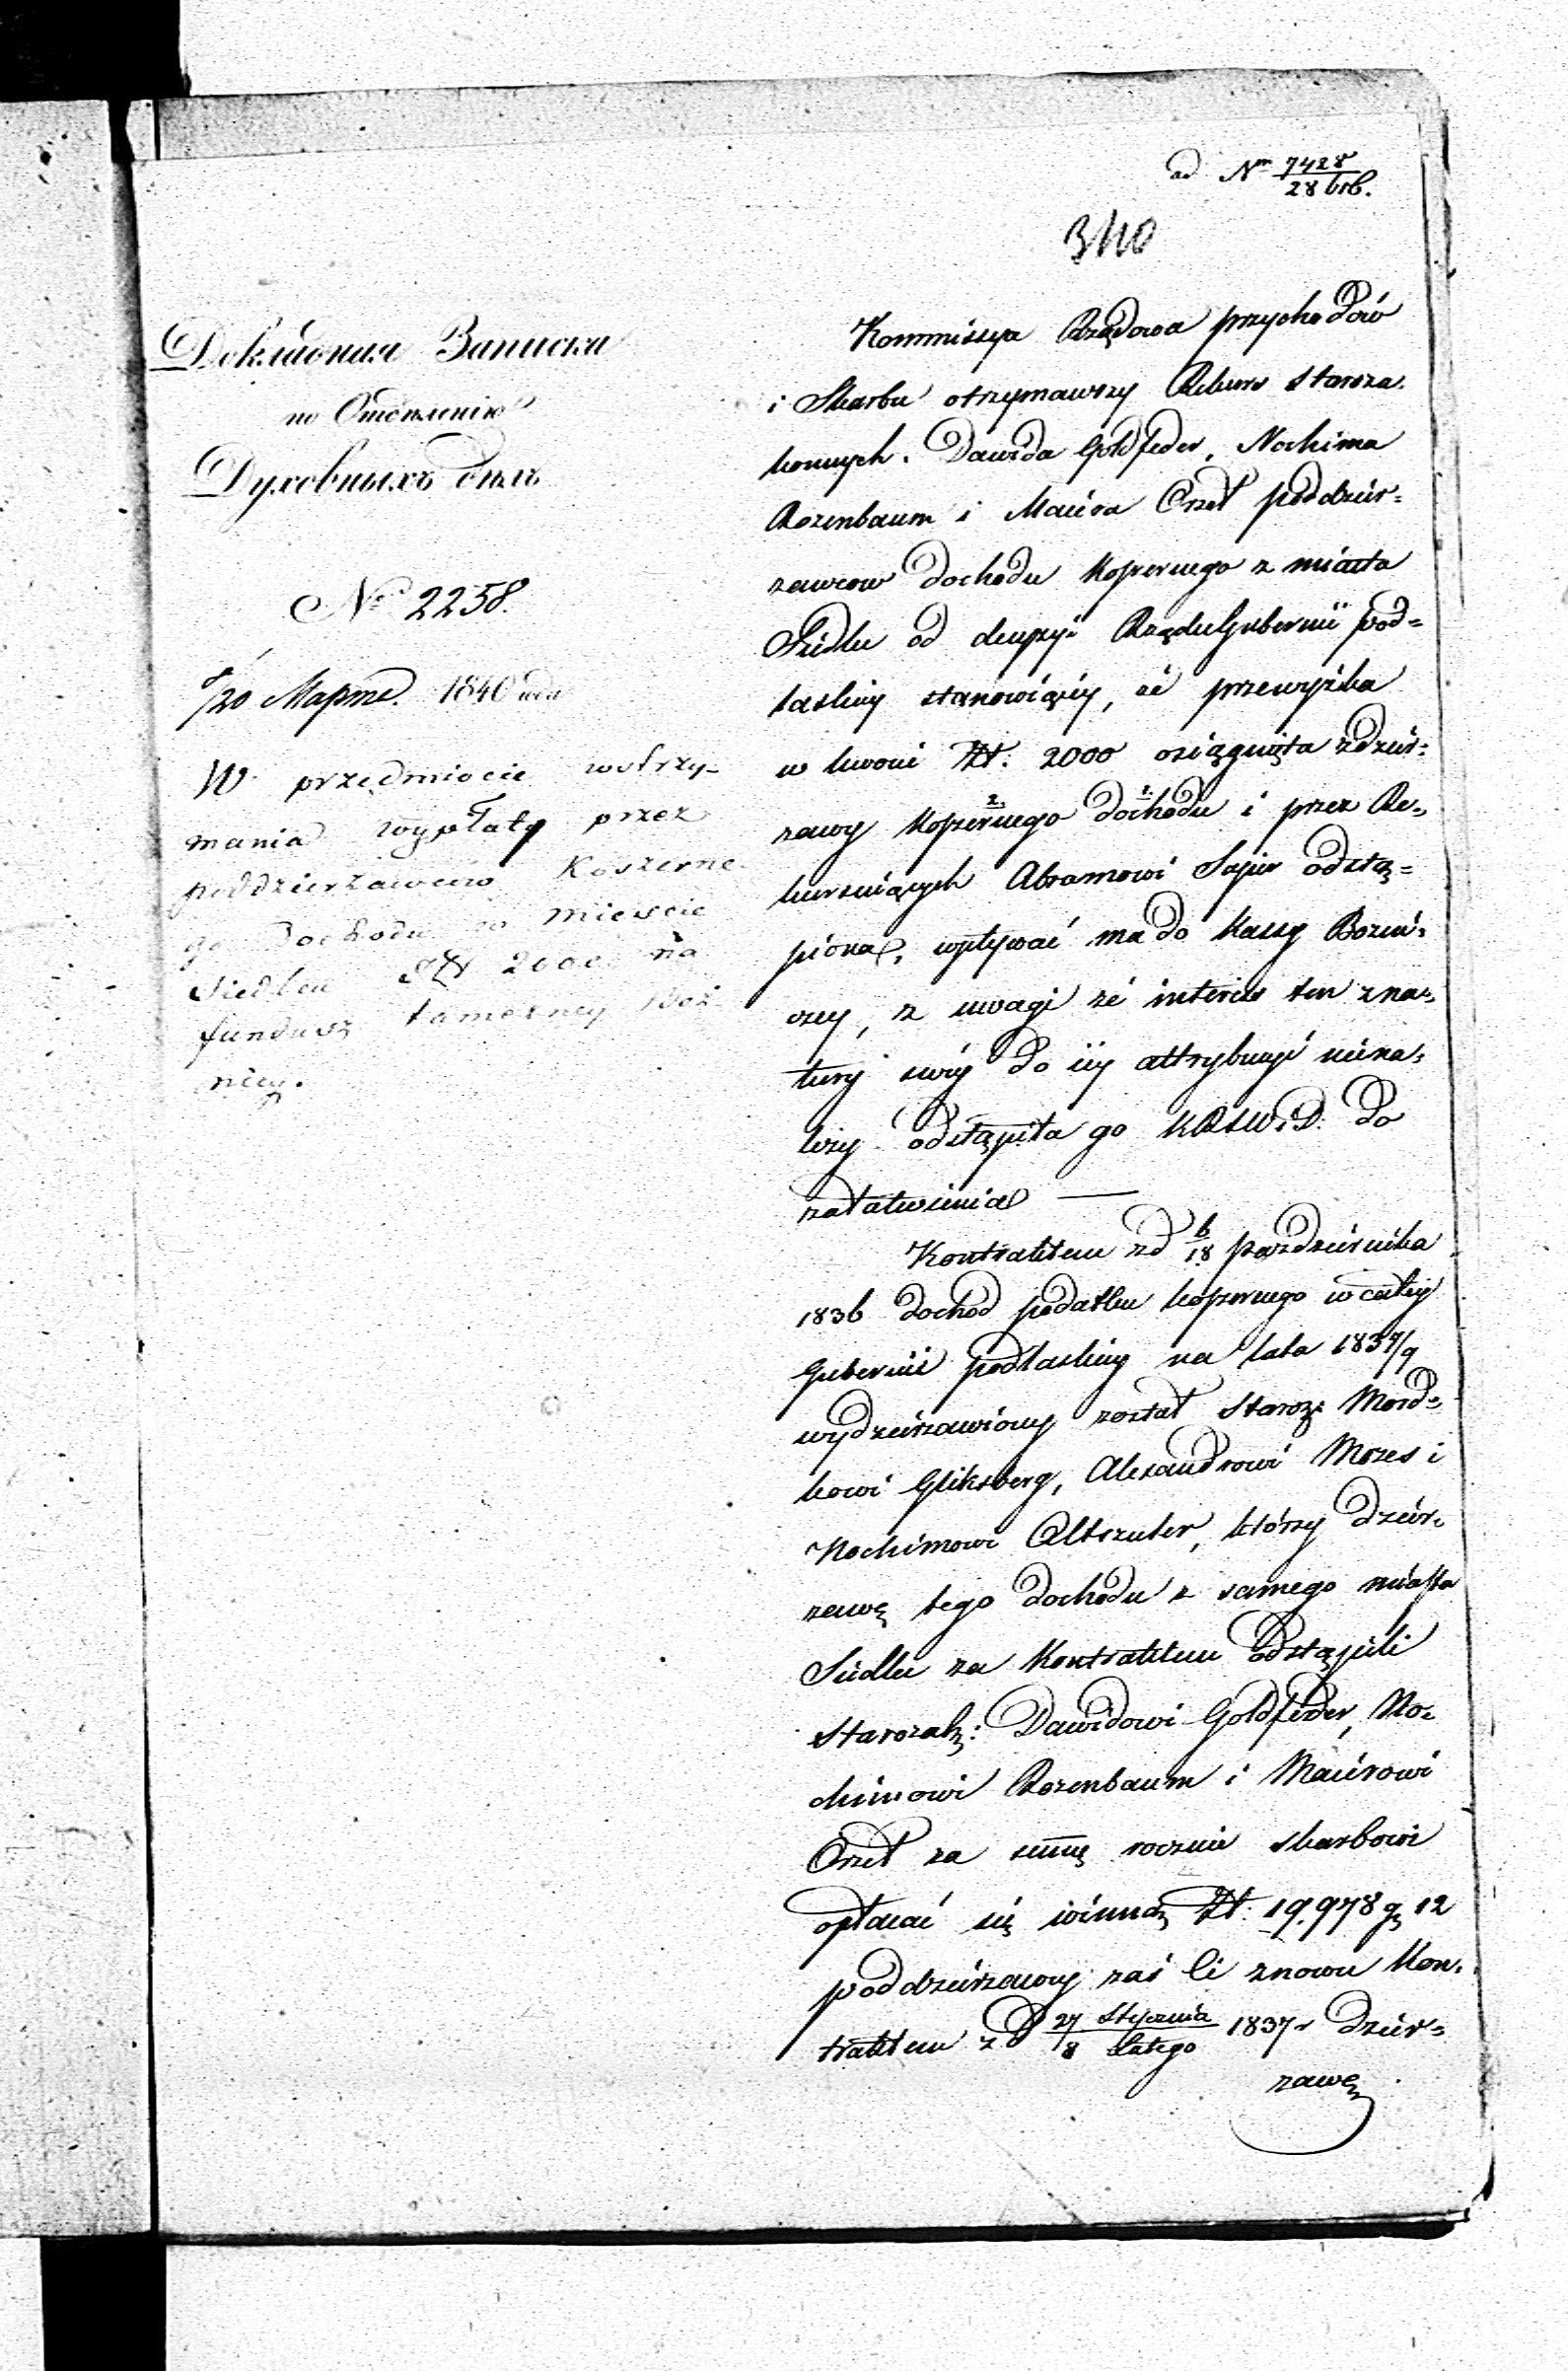 ad Nro 7428/28 brb.
340
Докладная Записка
по Отдѣленію
Духовныхъ дѣлъ
№ 2258.
8/20 Марта 1840 года
W przedmiocie wstrzy-
mania wypłaty przez
poddzierżawców Koszerne-
go dochodu w mieście
Siedlcu Zł 2000 na
fundusz tameczney Boż-
nicy.
Kommissya Rządowa przychodów
i Skarbu otrzymawszy Rekurs Staroza-
konnych. Dawida Goldfeder, Nochima
Rozenbaum i Maiera Orzeł poddzier=
zawców dochodu koszernego z miasta
Siedlec od decyzyi Rządu Gubernii pod=
laskiey stanowiącéy, że przewyżka
w kwocie Zł. 2000 osiągnięta z dzier=
zawy koszernego dochodu i przez Re=
kursuiących Abramowi Sapir odstą=
piona, wpływać ma do kassy Bożni=
czey, z uwagi że interes ten z na=
tury swéy do iéy attrybucyi nie na=
leży odstąpiła go KRSWiD. do
załatwienia —
Kontraktem z d 6/18 pazdziernika
1836 dochód podatku koszernego w całéy
Gubernii podlaskiey na lata 1837/9
wydzierzawiony został Staroz: Mord=
kowi Gliksberg, Alexandrowi Mozes i
Nochimowi Altszuler, którzy dzier=
zawę tego dochodu z samego miasta
Siedlec za Kontraktem odstąpili
Starozak: Dawidowi Goldfeder, No=
chimowi Rozenbaum i Maierowi
Orzeł za summę rocznie skarbowi
opłacać się winną Zł: 19.978 g 12
poddzierzawcy zaś ci znowu Kon=
traktem z d 27 Stycznia/8 Lutego 1837 r dzier=
zawę